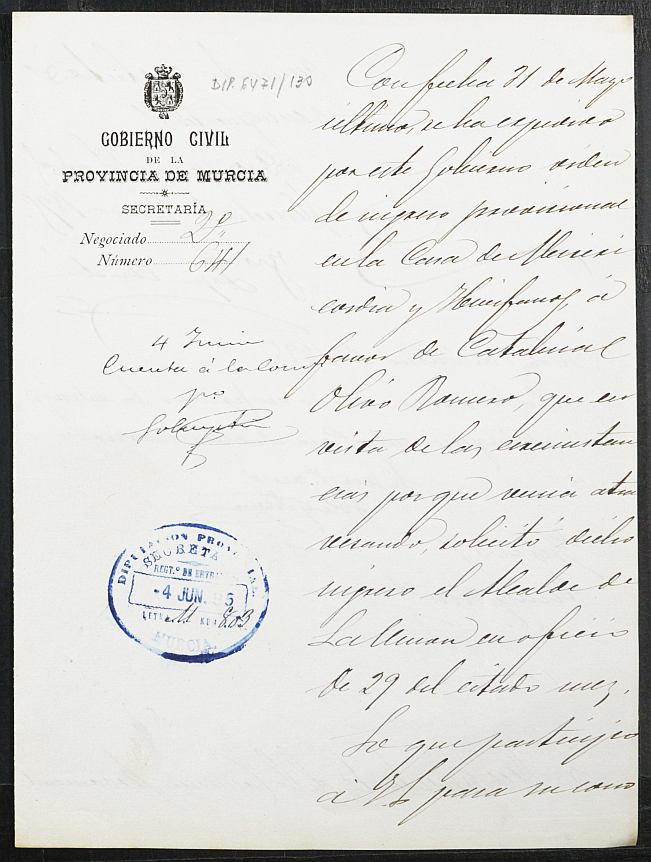 DIP. 6471/130
GOBIERNO CIVIL
DE LA
PROVINCIA DE MURCIA
SECRETARÍA
Negociado 2º
Número 641
4 Junio
Cuenta á la Com
pª
Con fecha 31 de Mayo
último, se ha expedido
por este Gobierno orden
de ingreso provisional
en la Casa de Miseri
cordia y Huérfanos, á
favor de Catalina
Olivo Romero, que en
vista de las circunstan
cias porque venia atra
vesando, solicitó dicho
ingreso el Alcalde de
La Union en oficio
de 29 del citado mez.
Lo que participo
á VS para su cono
DIPUTACION PROVINCIAL
SECRETA
REGT.º DE ENTR
-4 JUN. 95
LETRA M NUM 803
MURCIA